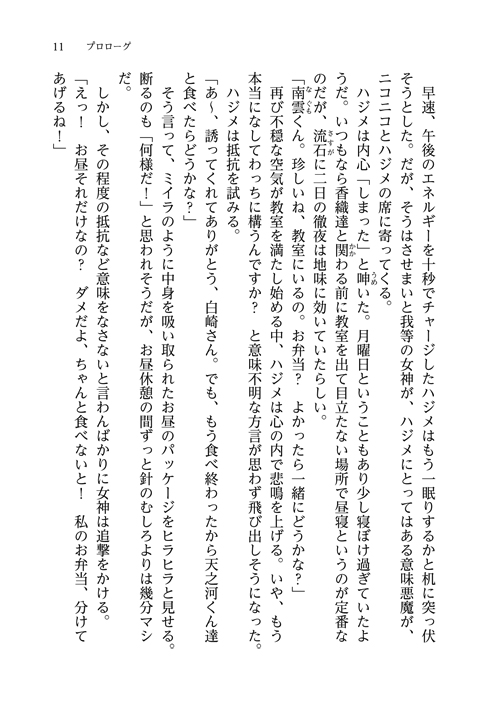 11　プロローグ
　早速、午後のエネルギーを十秒でチャージしたハジメはもう一眠りするかと机に突っ伏
そうとした。だが、そうはさせまいと我等の女神が、ハジメにとってはある意味悪魔が、
ニコニコとハジメの席に寄ってくる。
　ハジメは内心「しまった」と呻いた。月曜日ということもあり少し寝ぼけ過ぎていたよ
うだ。いつもなら香織達と関わる前に教室を出て目立たない場所で昼寝というのが定番な
のだが、流石に二日の徹夜は地味に効いていたらしい。
「南雲くん。珍しいね、教室にいるの。お弁当？　よかったら一緒にどうかな？」
　再び不穏な空気が教室を満たし始める中、ハジメは心の内で悲鳴を上げる。いや、もう
本当になしてわっちに構うんですか？　と意味不明な方言が思わず飛び出しそうになった。
　ハジメは抵抗を試みる。
「あ〜、誘ってくれてありがとう、白崎さん。でも、もう食べ終わったから天之河くん達
と食べたらどうかな？」
　そう言って、ミイラのように中身を吸い取られたお昼のパッケージをヒラヒラと見せる。
断るのも「何様だ！」と思われそうだが、お昼休憩の間ずっと針のむしろよりは幾分マシ
だ。
　しかし、その程度の抵抗など意味をなさないと言わんばかりに女神は追撃をかける。
「えっ！　お昼それだけなの？　ダメだよ、ちゃんと食べないと！　私のお弁当、分けて
あげるね！」